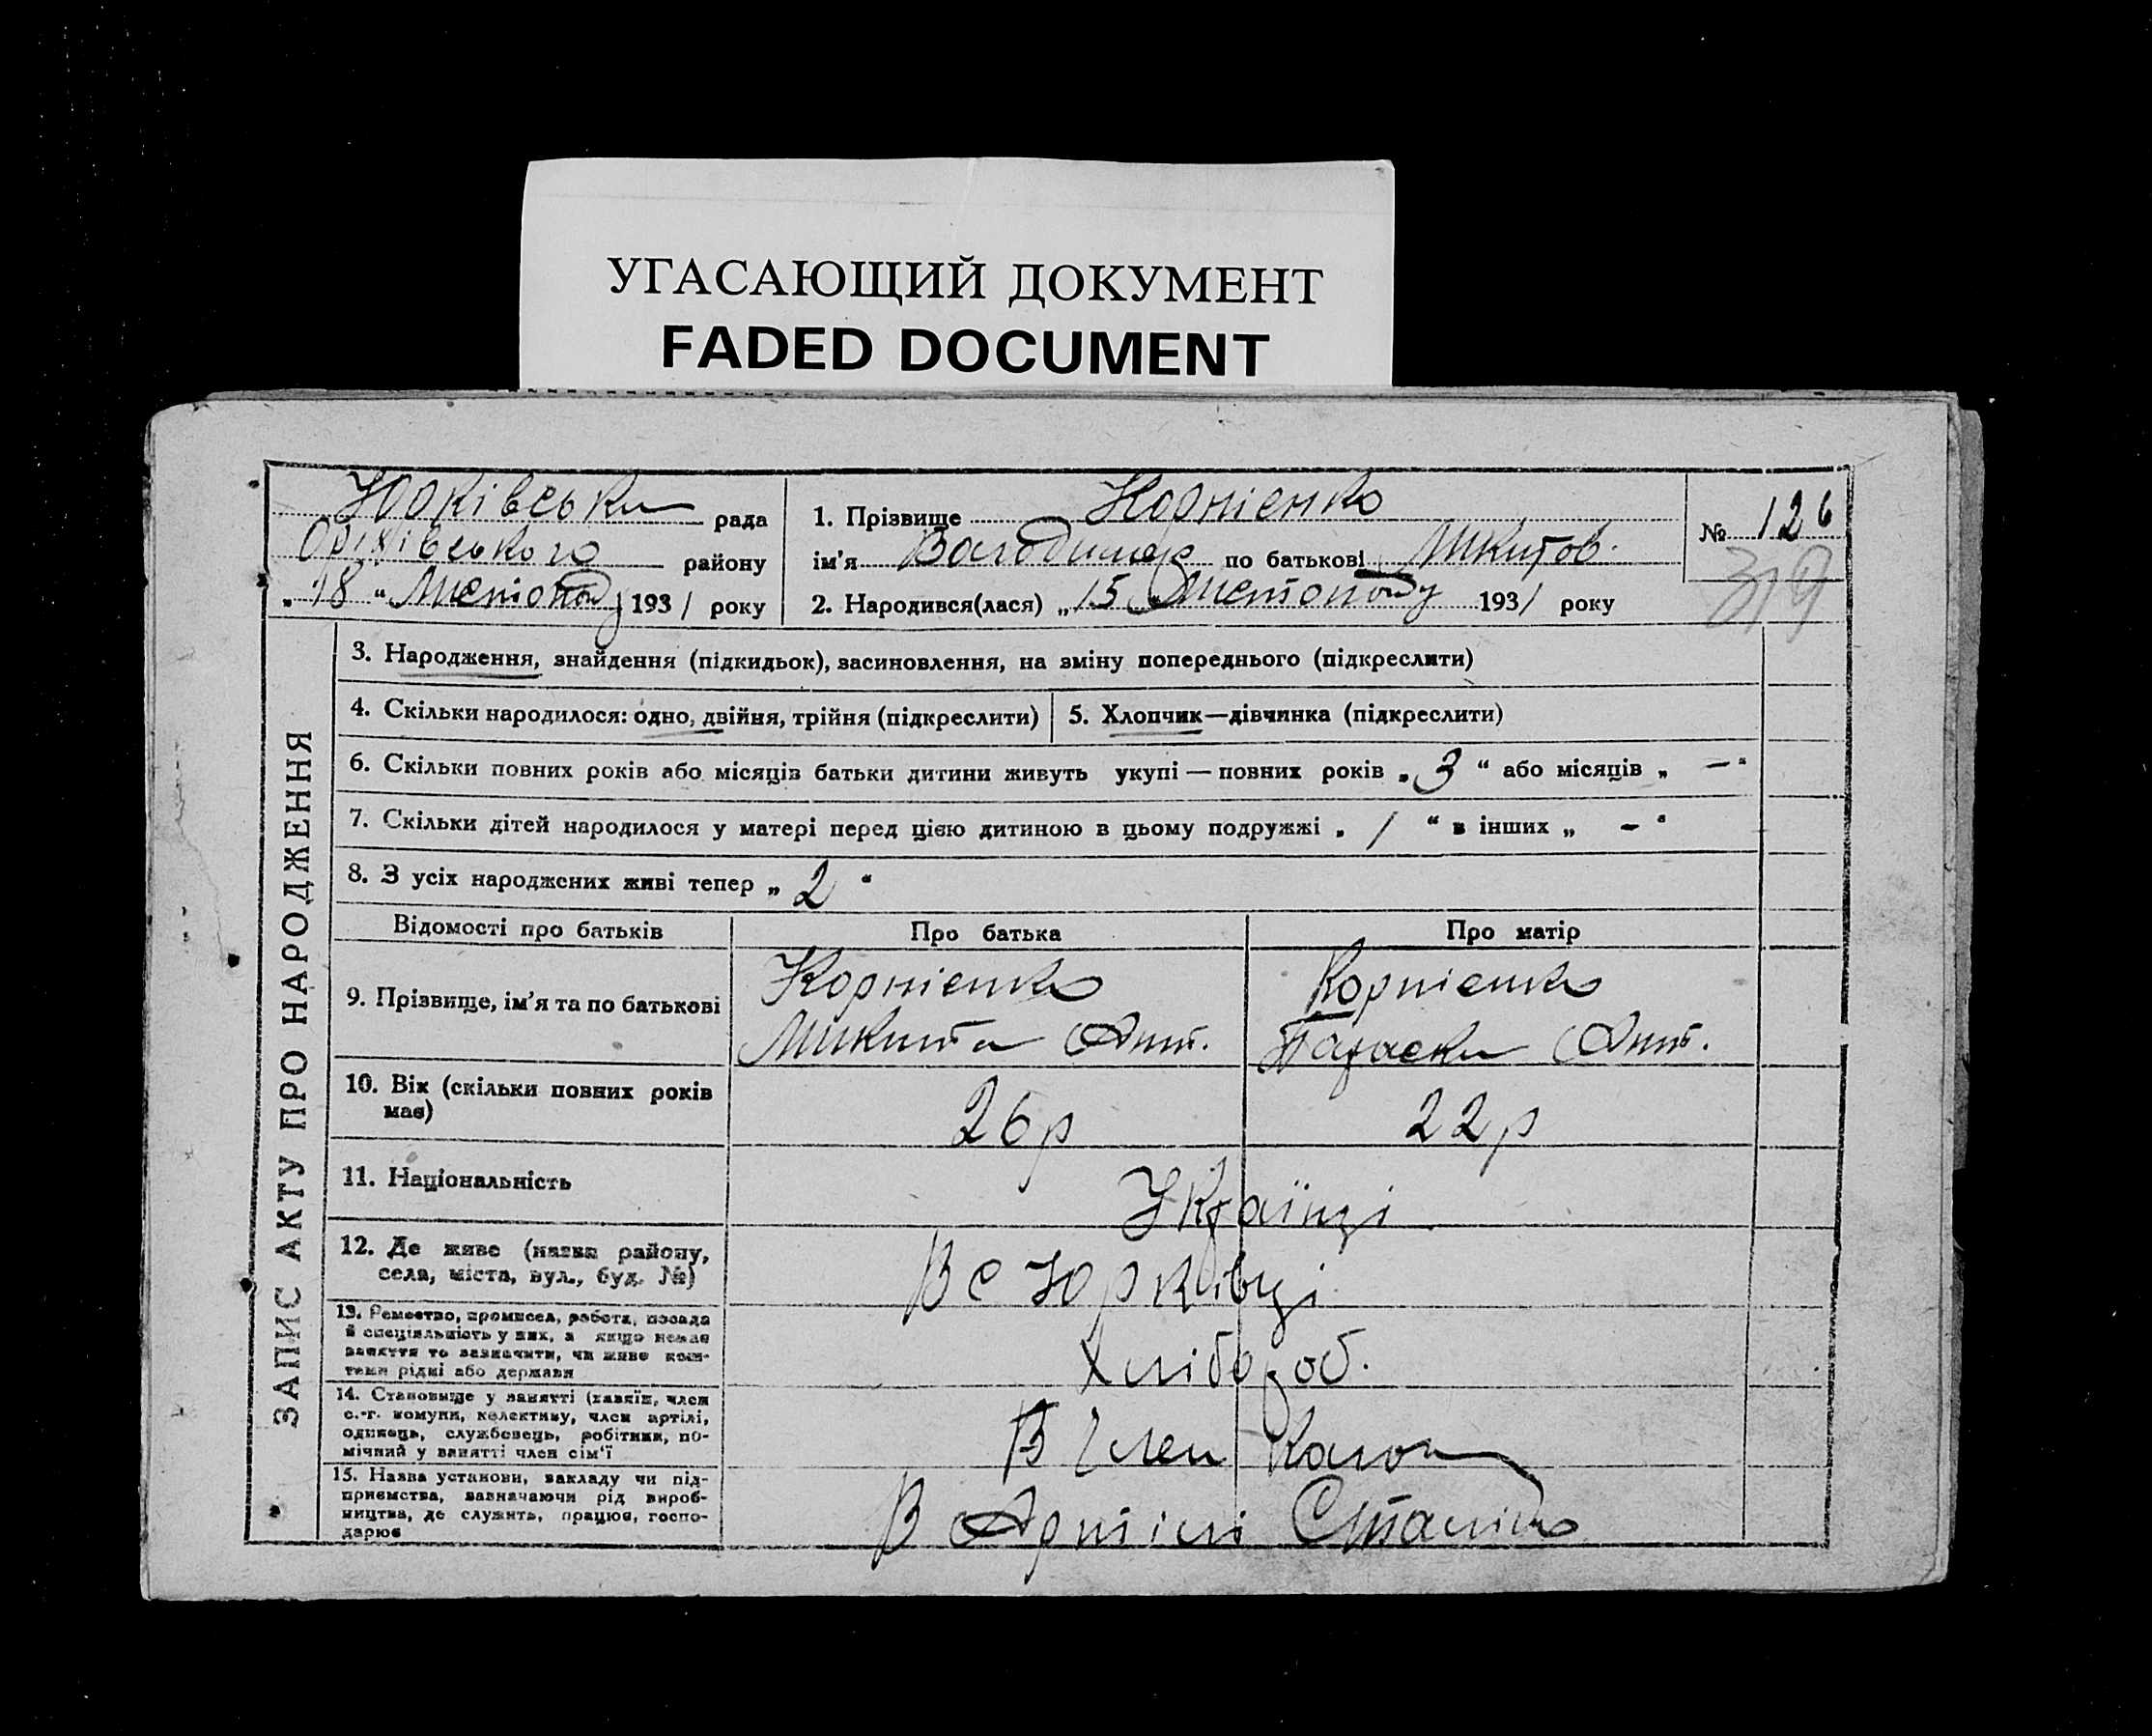 УГАСАЮЩИЙ ДОКУМЕНТ
FADED DOCUMENT
Юрківська рада
Оріхівського району
„18“ Листопаду 1931 року
1. Прізвище Корнієнко
ім'я Володимир по батькові Микитов.
2. Народився(лася) „15 Листопаду 1931 року
№ 126
319
ЗАПИС АКТУ ПРО НАРОДЖЕННЯ
3. Народження, знайдення (підкидьок), засиновлення, на зміну попереднього (підкреслити)
4. Скільки народилося: одно, двійня, трійня (підкреслити)
5. Хлопчик—дівчинка (підкреслити)
6. Скільки повних років або місяців батьки дитини живуть укупі — повних років „3“ або місяців „—“
7. Скільки дітей народилося у матері перед цією дитиною в цьому подружжі „1“ в інших „—“
8. З усіх народжених живі тепер „2“
Відомості про батьків
Про батька
Про матір
9. Прізвище, ім'я та по батькові
Корнієнко
Микита Ант.
Корнієнко
Параска Ант.
10. Вік (скільки повних років
має)
26 р
22 р
11. Національність
Українці
12. Де живе (назва району,
села, міста, вул., буд. №)
В с Юрківці
13. Ремество, промисел, робота, посада
й спеціяльність у них, а якщо немає
заняття то зазначити, чи живе кош-
тами рідні або держави
Хлібороб.
14. Становище у занятті (хазяїн, член
с.-г. комуни, колективу, член артілі,
одинець, службовець, робітник, по-
мічний у занятті член сім'ї
В Член
15. Назва установи, закладу чи під-
приємства, зазначаючи рід вироб-
ництва, де служить, працює, госпо-
дарює
В Артілі Сталіна